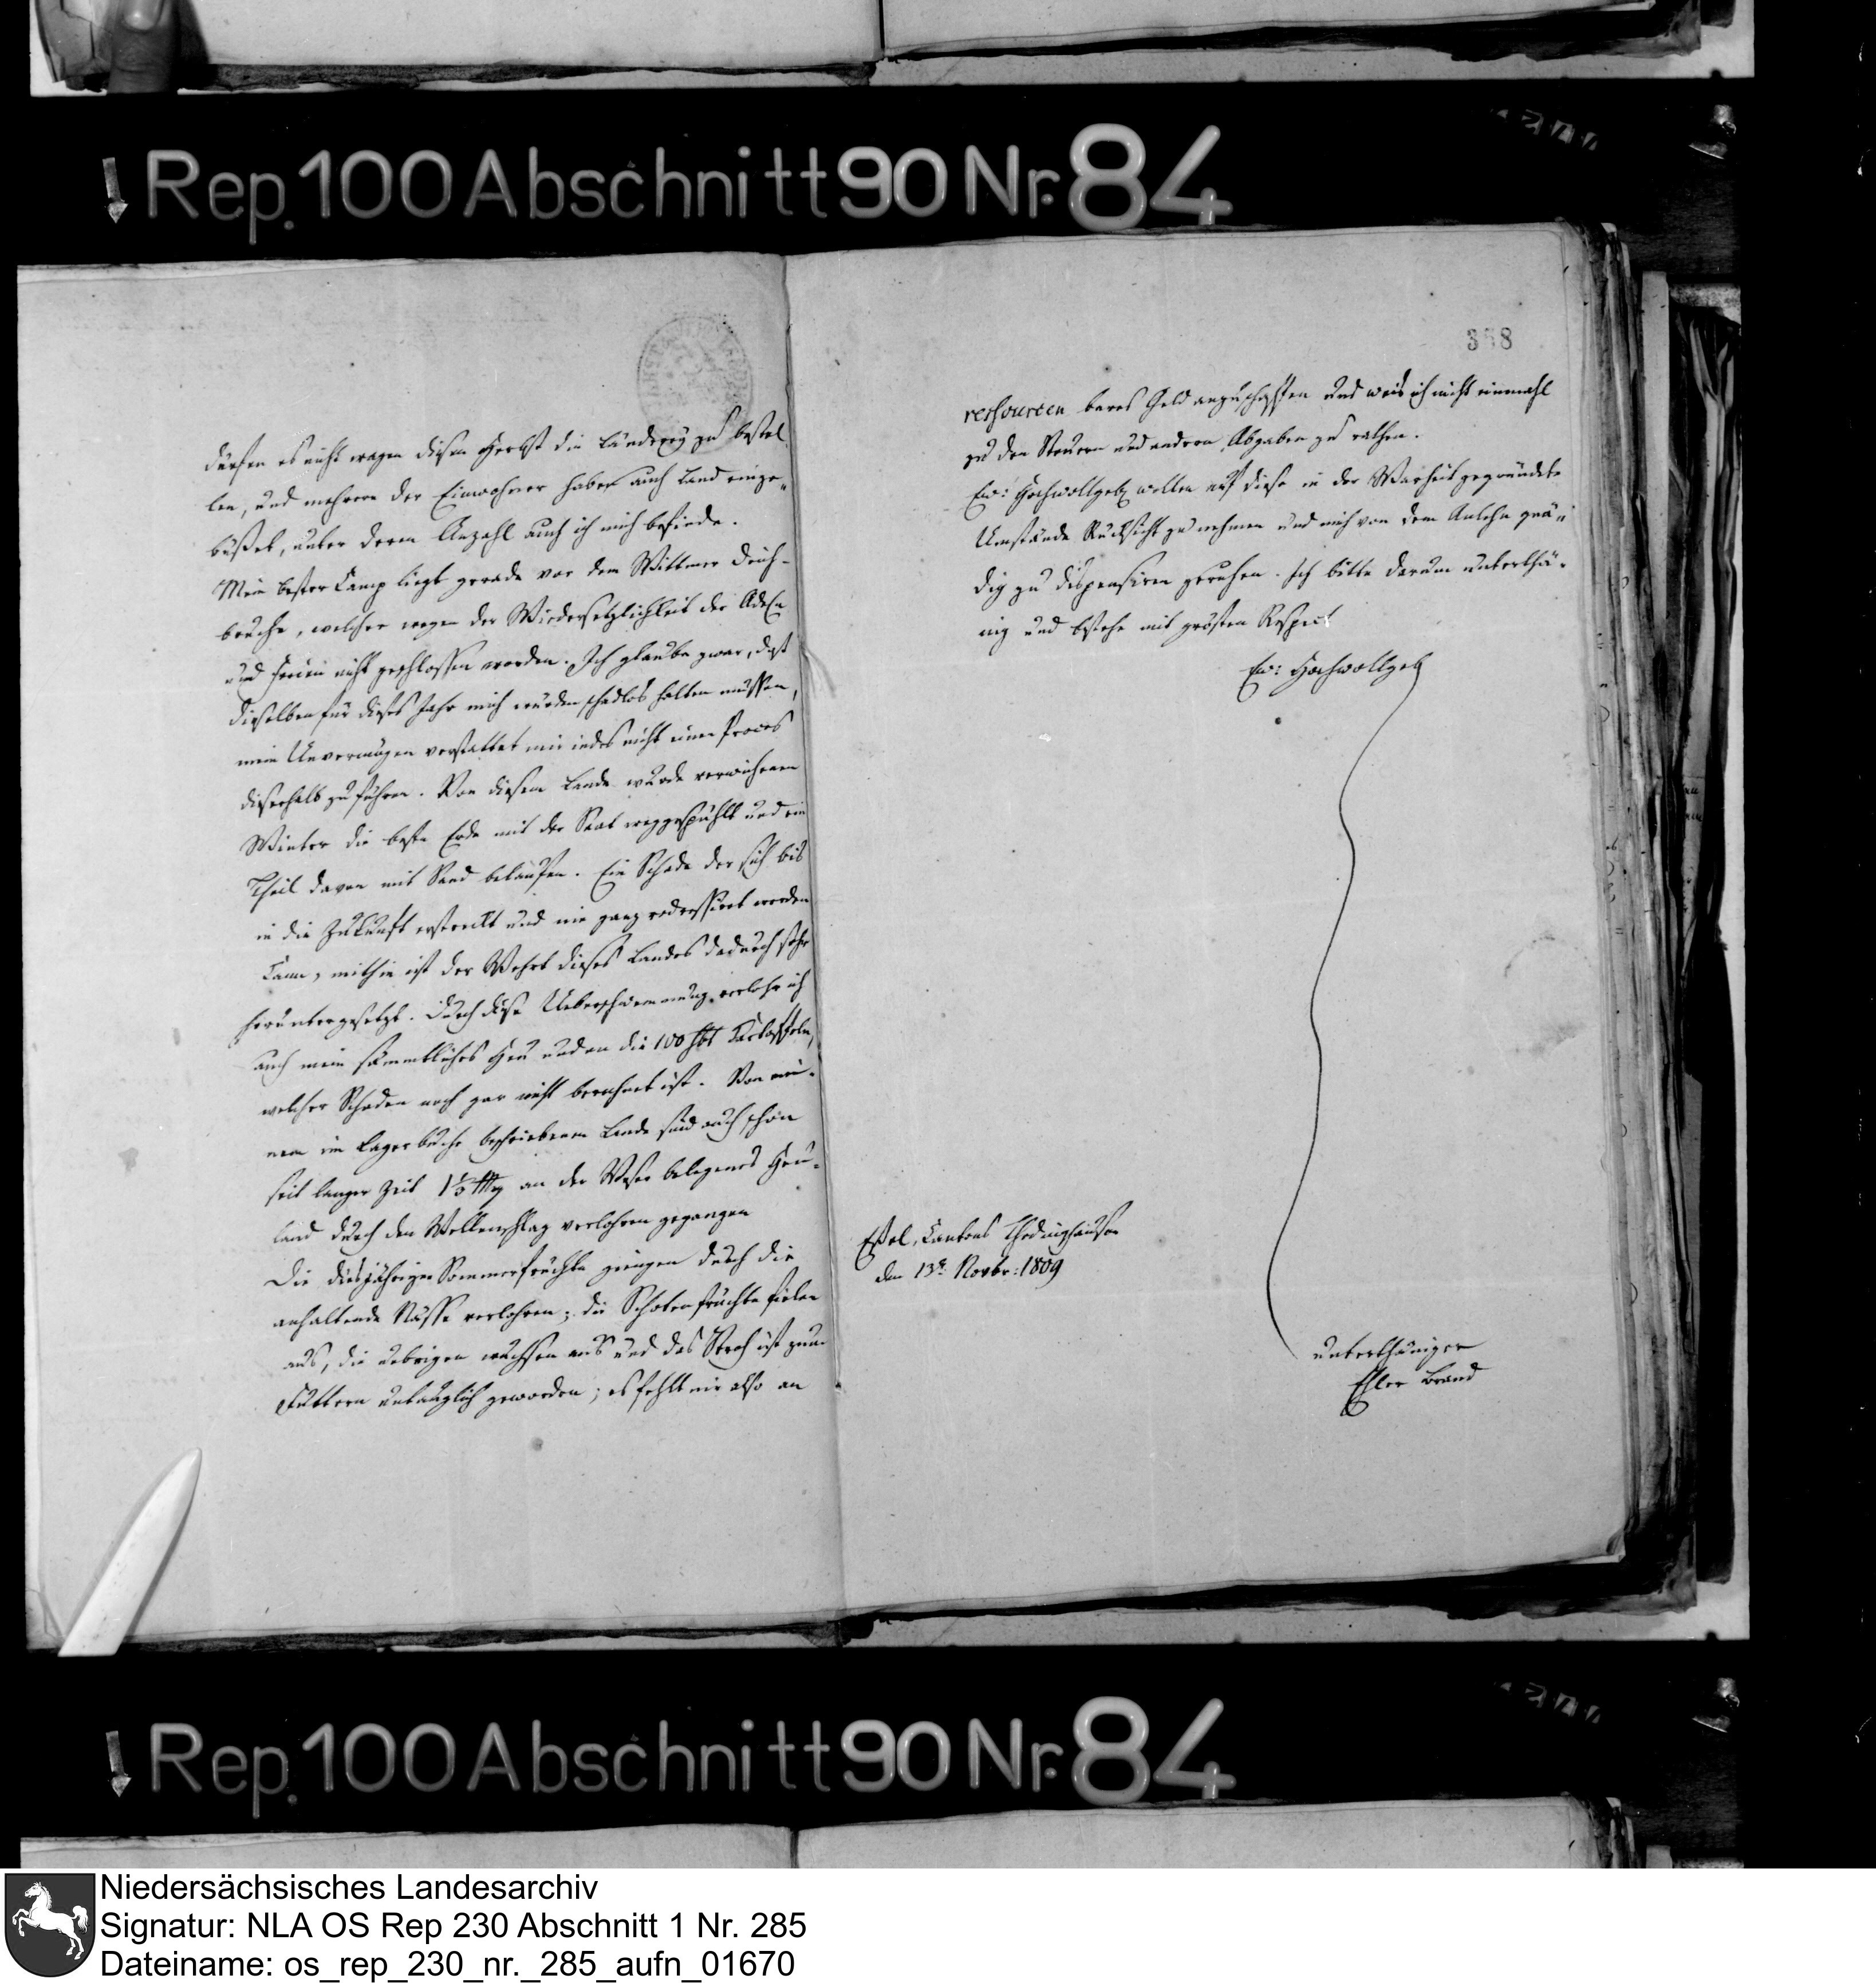 Rep. 100 Abschnitt 90 Nr. 84
dürfen es nicht wagen diesen Herbst die Länderey zu bestel
len, und mehrere der Einwohner haben auch Land einge„
büßet, unter deren Anzahl auch ich mich befinde.
Mein bester Camp liegt gerade vor dem Wittmer Deich-
bruche, welcher wegen der Wiedersetzlichkeit der
und Freien nicht geschlossen worden. Ich glaube zwar, daß
dieselben für dieses Jahr mich würden schadlos halten müssen,
mein Unvermögen verstattet mir indes nicht einen Proces
dieserhalb zu führen. Von diesem Lande wurde verwichenen
Winter die beste Erde mit der Saat weggespühlt und ein
Theil davon mit Sand belaufen. Ein Schade der sich bis
in die Zukunft erstreckt und nie ganz redressirt werden
kann, mithin ist der Wehrt dieses Landes dadurch sehr
heruntergesetzt. Durch diese Ueberschwemmung verlohr ich
auch mein sämmtliches Heu und an die 100 hbt Cartoffeln,
welcher Schaden noch gar nicht berechnet ist. Von mei-
nem im Lagerbuche beschriebenen Lande sind auch schon
seit langer Zeit an der Weser belegenes Heu-
land durch den Wellenschlag verlohren gegangen
Die diesjährigen Sommerfrüchte gingen durch die
anhaltende Nässe verlohren; die Schotenfrüchte fielen
aus, die uebrigen wuchsen aus und das Stroh ist zum
Futtern untauglich geworden; es fehlt mir also an
358
ressourcen bares Geld anzuschaffen und weis ich nicht einmahl
zu den Steuern und andern Abgaben zu rathen.
Ew: Hochwollgeb wollen auf diese in der Warheit gegründete
Umstände Rücksicht zu nehmen und mich von dem Anlehn gnä„
dig zu dispensiren geruhen. Ich bitte darum unterthä-
nig und bestehe mit grösten Respect
Ew: Hochwollgeb
Eißel, Cantons Thedinghausen
den 13t. Novbr: 1809
unterthäniger
Ehler Brand
Rep. 100 Abschnitt 90 Nr. 84
Niedersächsisches Landesarchiv
Signatur: NLA OS Rep 230 Abschnitt 1 Nr. 285
Dateiname: os_rep_230_nr._285_aufn_01670